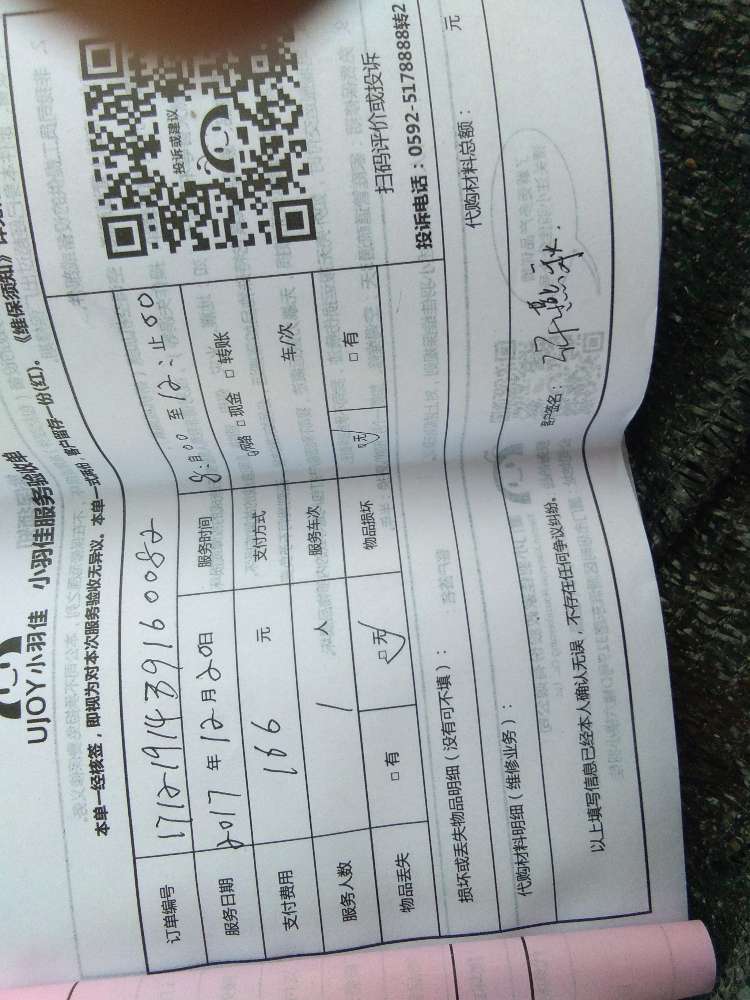 UJOY小羽佳 小羽佳服务验收单
本单一经核签，即视为对本次服务验收无异议。本单一式两份，客户留存一份(红)。《维保须知》
订单编号 1712191439160082
服务日期 2017年12月20日 服务时间 8:00至12:00止
支付费用 166元 支付方式 □网络 □现金 □转账
服务人数 1人 服务车次 车/次
物品丢失 □有 □无 物品损坏 □无 □有
投诉或建议
扫码评价或投诉
投诉电话：0592-5178888转2
损坏或丢失物品明细（没有可不填）：
代购材料明细（维修业务）： 代购材料总额： 元
以上填写信息已经本人确认无误，不存在任何争议纠纷。 客户签名：